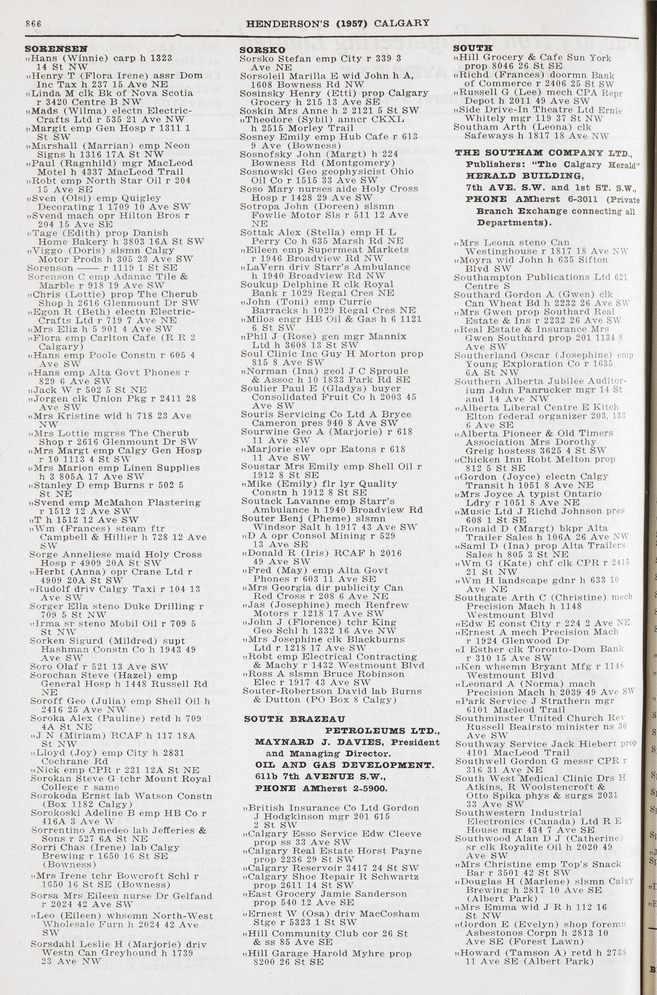 866
HENDERSON'S (1957) CALGARY
SORENSEN
"Hans (Winnie) carp h 1323
14 St NW
"Henry T (Flora Irene) assr Dom
Inc Tax h 237 15 Ave NE
"Linda M clk Bk of Nova Scotia
r 3420 Centre B NW
"Mads (Wilma) electn Electric-
Crafts Ltd r 535 21 Ave NW
"Margit emp Gen Hosp r 1311 1
St SW
"Marshall (Marrian) emp Neon
Signs h 1316 17A St NW
"Paul (Ragnhild) mgr MacLeod
Motel h 4337 MacLeod Trail
"Robt emp North Star Oil r 204
15 Ave SE
"Sven (Olsi) emp Quigley
Decorating 1 1709 10 Ave SW
"Svend mach opr Hilton Bros r
204 15 Ave SE
"Tage (Edith) prop Danish
Home Bakery h 3803 16A St SW
"Viggo (Doris) slsmn Calgy
Motor Prods h 305 23 Ave SW
Sorenson —— r 1119 1 St SE
Sorenson C emp Adanac Tile &
Marble r 918 19 Ave SW
"Chris (Lottie) prop The Cherub
Shop h 2616 Glenmount Dr SW
"Egon R (Beth) electn Electric-
Crafts Ltd r 719 7 Ave NE
"Mrs Eliz h 5 901 4 Ave SW
"Flora emp Carlton Cafe (R R 2
Calgary)
"Hans emp Poole Constn r 605 4
Ave SW
"Hans emp Alta Govt Phones r
829 6 Ave SW
"Jack W r 502 5 St NE
"Jorgen clk Union Pkg r 2411 28
Ave SW
"Mrs Kristine wid h 718 23 Ave
NW
"Mrs Lottie mgrss The Cherub
Shop r 2616 Glenmount Dr SW
"Mrs Margt emp Calgy Gen Hosp
r 10 1113 4 St SW
"Mrs Marion emp Linen Supplies
h 3 805A 17 Ave SW
"Stanley D emp Burns r 502 5
St NE
"Svend emp McMahon Plastering
r 1512 12 Ave SW
"T h 1512 12 Ave SW
"Wm (Frances) steam ftr
Campbell & Hillier h 728 12 Ave
SW
Sorge Anneliese maid Holy Cross
Hosp r 4909 20A St SW
"Herbt (Anna) opr Crane Ltd r
4909 20A St SW
"Rudolf driv Calgy Taxi r 104 13
Ave SW
Sorger Ella steno Duke Drilling r
709 5 St NW
"Irma sr steno Mobil Oil r 709 5
St NW
Sorken Sigurd (Mildred) supt
Hashman Constn Co h 1943 49
Ave SW
Soro Olaf r 521 13 Ave SW
Sorochan Steve (Hazel) emp
General Hosp h 1448 Russell Rd
NE
Soroff Geo (Julia) emp Shell Oil h
2416 25 Ave NW
Soroka Alex (Pauline) retd h 709
4A St NE
"J N (Miriam) RCAF h 117 18A
St NW
"Lloyd (Joy) emp City h 2831
Cochrane Rd
"Nick emp CPR r 221 12A St NE
Sorokan Steve G tchr Mount Royal
College r same
Sorokoda Ernst lab Watson Constn
(Box 1182 Calgy)
Sorokoski Adeline B emp HB Co r
416A 3 Ave W
Sorrentino Amedeo lab Jefferies &
Sons r 527 6A St NE
Sorri Chas (Irene) lab Calgy
Brewing r 1650 16 St SE
(Bowness)
"Mrs Irene tchr Bowcroft Schl r
1650 16 St SE (Bowness)
Sorsa Mrs Eileen nurse Dr Gelfand
r 2024 42 Ave SW
"Leo (Eileen) whsemn North-West
Wholesale Furn h 2024 42 Ave
SW
Sorsdahl Leslie H (Marjorie) driv
Westn Can Greyhound h 1739
23 Ave NW
SORSKO
Sorsko Stefan emp City r 339 3
Ave NE
Sorsoleil Marilla E wid John h A,
1608 Bowness Rd NW
Sosinsky Henry (Etti) prop Calgary
Grocery h 215 13 Ave SE
Soskin Mrs Anne h 2 2121 5 St SW
"Theodore (Sybil) anncr CKXL
h 2515 Morley Trail
Sosney Emily emp Hub Cafe r 613
9 Ave (Bowness)
Sosnofsky John (Margt) h 224
Bowness Rd (Montgomery)
Sosnowski Geo geophysicist Ohio
Oil Co r 1515 33 Ave SW
Soso Mary nurses aide Holy Cross
Hosp r 1428 29 Ave SW
Sotropa John (Doreen) slsmn
Fowlie Motor Sls r 511 12 Ave
NE
Sottak Alex (Stella) emp H L
Perry Co h 635 Marsh Rd NE
"Eileen emp Supermeat Markets
r 1946 Broadview Rd NW
"LaVern driv Starr's Ambulance
h 1940 Broadview Rd NW
Soukup Delphine R clk Royal
Bank r 1029 Regal Cres NE
"John (Toni) emp Currie
Barracks h 1029 Regal Cres NE
"Milos engr HB Oil & Gas h 6 1121
6 St SW
"Phil J (Rose) gen mgr Mannix
Ltd h 3608 13 St SW
Soul Clinic Inc Guy H Morton prop
815 8 Ave SW
"Norman (Ina) geol J C Sproule
& Assoc h 10 1833 Park Rd SE
Soulier Paul E (Gladys) buyer
Consolidated Fruit Co h 2003 45
Ave SW
Souris Servicing Co Ltd A Bryce
Cameron pres 940 8 Ave SW
Sourwine Geo A (Marjorie) r 618
11 Ave SW
"Marjorie elev opr Eatons r 618
11 Ave SW
Soustar Mrs Emily emp Shell Oil r
1912 8 St SE
"Mike (Emily) flr lyr Quality
Constn h 1912 8 St SE
Soutack Lavanne emp Starr's
Ambulance h 1940 Broadview Rd
Souter Benj (Pheme) slsmn
Windsor Salt h 1917 43 Ave SW
"D A opr Consol Mining r 529
13 Ave SE
"Donald R (Iris) RCAF h 2016
49 Ave SW
"Fred (May) emp Alta Govt
Phones r 603 11 Ave SE
"Mrs Georgia dir publicity Can
Red Cross r 208 6 Ave NE
"Jas (Josephine) mech Renfrew
Motors r 1218 17 Ave SW
"John J (Florence) tchr King
Geo Schl h 1332 16 Ave NW
"Mrs Josephine clk Blackburns
Ltd r 1218 17 Ave SW
"Robt emp Electrical Contracting
& Machy r 1432 Westmount Blvd
"Ross A slsmn Bruce Robinson
Elec r 1917 43 Ave SW
Souter-Robertson David lab Burns
& Dutton (PO Box 8 Calgy)
SOUTH BRAZEAU
PETROLEUMS LTD.,
MAYNARD J. DAVIES, President
and Managing Director.
OIL AND GAS DEVELOPMENT.
611b 7th AVENUE S.W.,
PHONE AMherst 2-5900.
"British Insurance Co Ltd Gordon
J Hodgkinson mgr 201 615
2 St SW
"Calgary Esso Service Edw Cleeve
prop ss 33 Ave SW
"Calgary Real Estate Horst Payne
prop 2236 29 St SW
"Calgary Reservoir 3417 24 St SW
"Calgary Shoe Repair R Schwartz
prop 2611 14 St SW
"East Grocery Jamie Sanderson
prop 540 12 Ave SE
"Ernest W (Osa) driv MacCosham
Stge r 5323 1 St SW
"Hill Community Club cor 26 St
& ss 85 Ave SE
"Hill Garage Harold Myhre prop
8200 26 St SE
SOUTH
"Hill Grocery & Cafe Sun York
prop 8046 26 St SE
"Richd (Frances) doormn Bank
of Commerce r 2406 25 St SW
"Russell G (Lee) mech CPA Repr
Depot h 2011 49 Ave SW
"Side Drive-In Theatre Ltd Ernie
Whitely mgr 119 37 St NW
Southam Arth (Leona) clk
Safeways h 1817 18 Ave NW
THE SOUTHAM COMPANY LTD.,
Publishers: "The Calgary Herald"
HERALD BUILDING,
7th AVE. S.W. and 1st ST. S.W.,
PHONE AMherst 6-3011 (Private
Branch Exchange connecting all
Departments).
"Mrs Leona steno Can
Westinghouse r 1817 18 Ave NW
"Moyra wid John h 635 Sifton
Blvd SW
Southampton Publications Ltd 621
Centre S
Southard Gordon A (Gwen) clk
Can Wheat Bd h 2232 26 Ave SW
"Mrs Gwen prop Southard Real
Estate & Ins r 2232 26 Ave SW
"Real Estate & Insurance Mrs
Gwen Southard prop 201 1134 8
Ave SW
Southerland Oscar (Josephine) emp
Young Exploration Co r 1635
6A St NW
Southern Alberta Jubilee Auditor-
ium John Panrucker mgr 14 St
and 14 Ave NW
"Alberta Liberal Centre E Kitch
Elton federal organizer 203, 133
6 Ave SE
"Alberta Pioneer & Old Timers
Association Mrs Dorothy
Greig hostess 3625 4 St SW
"Chicken Inn Robt Melton prop
812 5 St SE
"Gordon (Joyce) electn Calgy
Transit h 1051 8 Ave NE
"Mrs Joyce A typist Ontario
Ldry r 1051 8 Ave NE
"Music Ltd J Richd Johnson pres
608 1 St SE
"Ronald D (Margt) bkpr Alta
Trailer Sales h 106A 26 Ave NW
"Saml D (Ina) prop Alta Trailers
Sales h 805 3 St NE
"Wm G (Kate) chf clk CPR r 2415
21 St NW
"Wm H landscape gdnr h 633 10
Ave NE
Southgate Arth C (Christine) mech
Precision Mach h 1148
Westmount Blvd
"Edw E const City r 224 2 Ave NE
"Ernest A mech Precision Mach
r 1924 Glenwood Dr
"I Esther clk Toronto-Dom Bank
r 310 15 Ave SW
"Ken whsemn Bryant Mfg r 1148
Westmount Blvd
"Leonard A (Norma) mach
Precision Mach h 2039 49 Ave SW
"Park Service J Strathern mgr
6101 Macleod Trail
Southminster United Church Rev
Russell Beairsto minister ns 30
Ave SW
Southway Service Jack Hiebert prop
4101 MacLeod Trail
Southwell Gordon G messr CPR r
316 31 Ave NE
South West Medical Clinic Drs H
Atkins, R Woolstencroft &
Otto Spika phys & surgs 2031
33 Ave SW
Southwestern Industrial
Electronics (Canada) Ltd R E
House mgr 434 7 Ave SE
Southwood Alan D J (Catherine)
sr clk Royalite Oil h 2020 49
Ave SW
"Mrs Christine emp Top's Snack
Bar r 3501 42 St SW
"Douglas H (Marlene) slsmn Calgy
Brewing h 2817 10 Ave SE
(Albert Park)
"Mrs Emma wid J R h 112 16
St NW
"Gordon E (Evelyn) shop foremn
Asbestonos Corpn h 2813 10
Ave SE (Forest Lawn)
"Howard (Tamson A) retd h 2738
11 Ave SE (Albert Park)